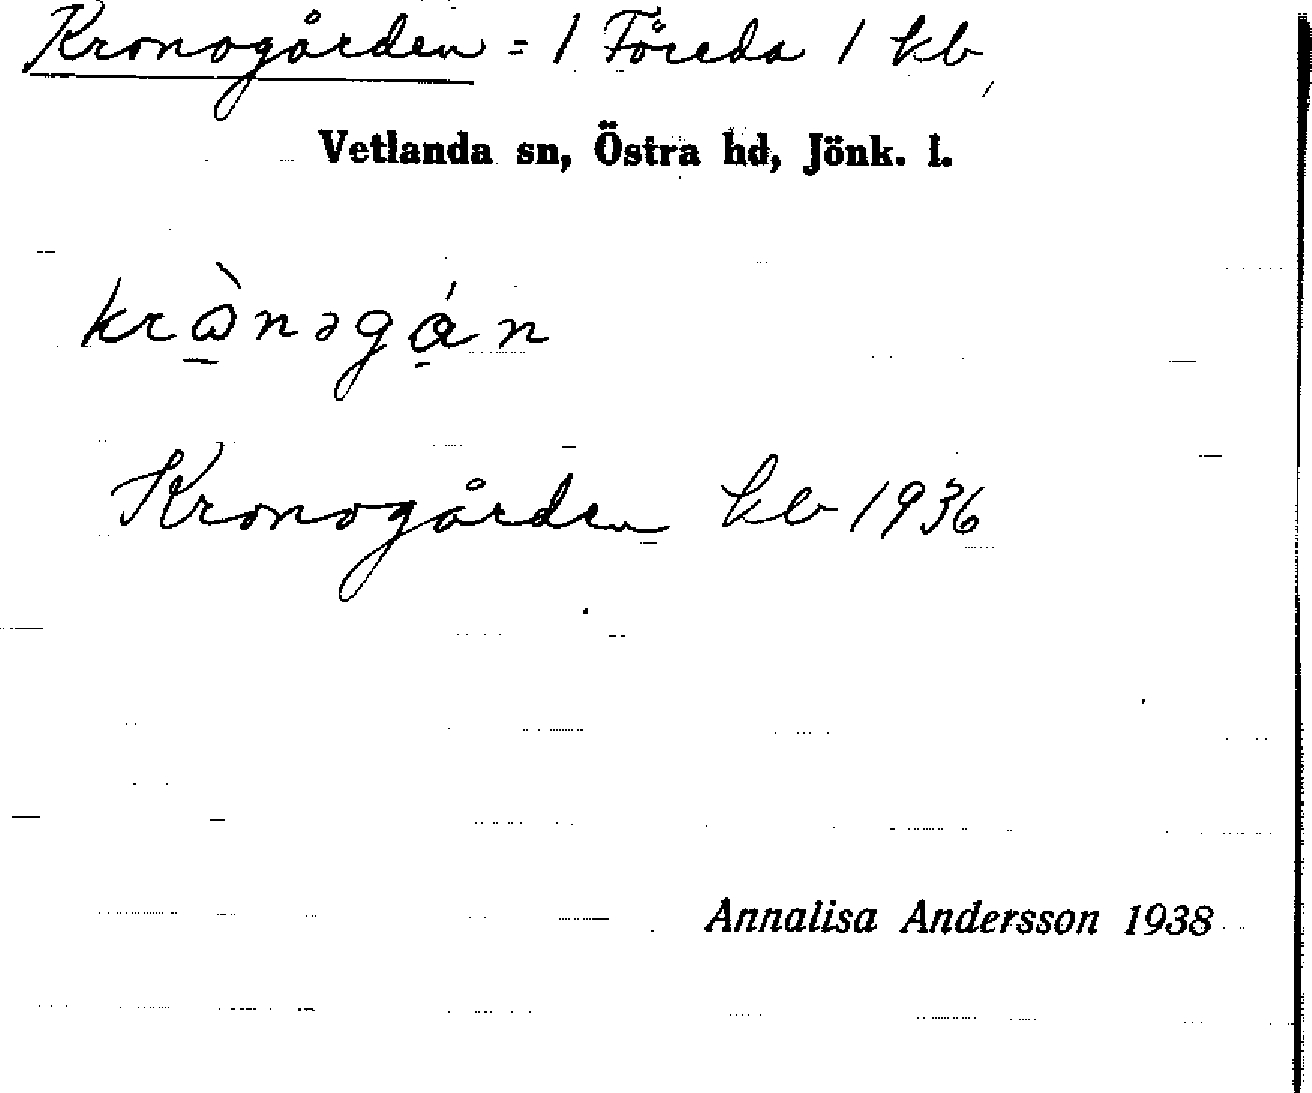 Kronogården = 1 Föreda 1 kb
Vetlanda sn, Östra hd, Jönk. l.
Kronogården kb 1936
Annalisa Andersson 1938